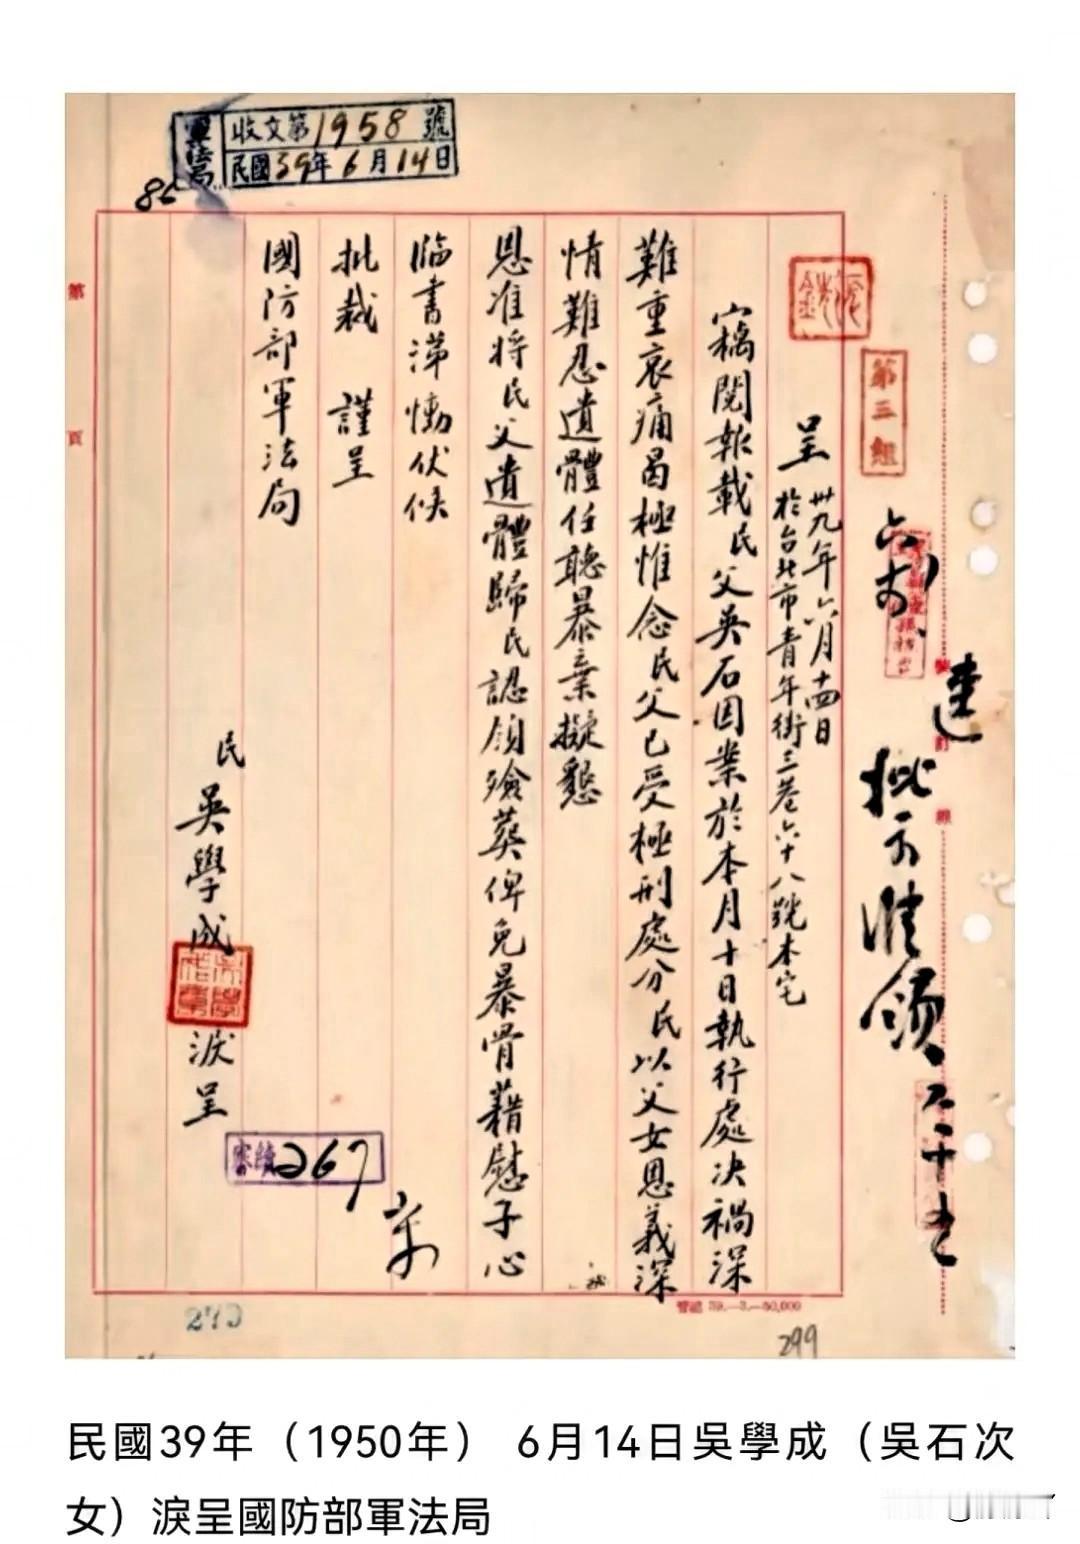 軍法局
收文第1958號
民國39年6月14日
86
第三組
呈
卅九年六月十四日
於台北市青年街三巷六十八號本宅
竊閱報載民父吳石因案於本月十日執行處决禍深
難重哀痛曷極惟念民父已受極刑處分民以父女恩義深
情難忍遺體任聽暴棄擬懇
恩准將民父遺體歸民認領殮葬俾免暴骨藉慰子心
臨書涕慟伏候
批裁 謹呈
國防部軍法局
民
吳學成
淚呈
267
第
頁
270
299
批示准領
民國39年（1950年） 6月14日吳學成（吳石次
女）淚呈國防部軍法局